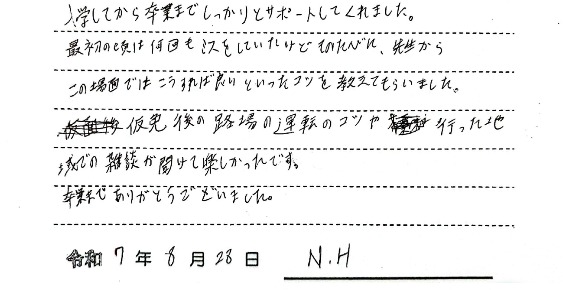 入学してから卒業までしっかりとサポートしてくれました。
最初の頃は何回もミスをしていたけどそのたびに、先生から
この場面ではこうすれば良いといったコツを教えてもらいました。
仮免後の路場の運転のコツや行った地
域での雑談が聞けて楽しかったです。
卒業までありがとうございました。
令和 7 年 8 月 28 日 N.H